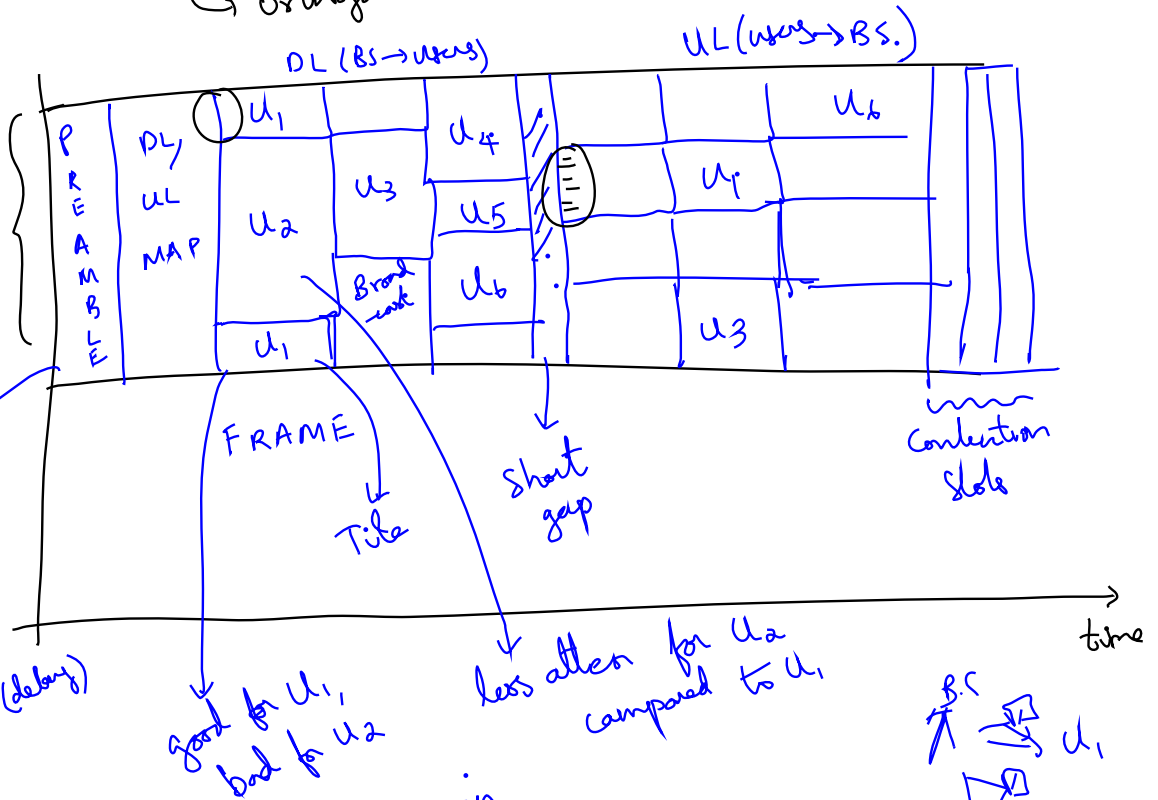 DL (BS→users)
UL (users→BS.)
PREAMBLE
DL,
UL
MAP
U1
U2
U1
U3
Broad
cast
U4
U5
U6
U6
U1
U3
FRAME
Tile
Short
gap
Contention
Slots
time
(delay)
good for U1,
bad for U2
less atten for U2
compared to U1
B.S
U1